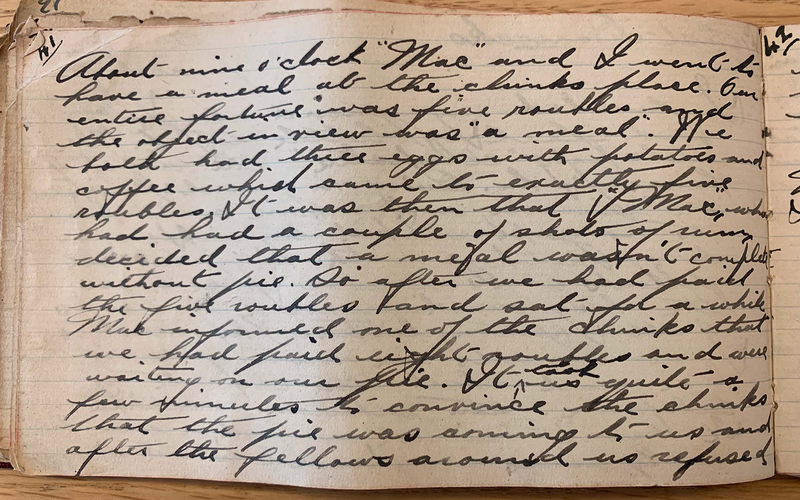 41
42
About nine o'clock "Mac" and I went to
have a meal at the chinks place. Our
entire fortune was five roubles and
the object in view was "a meal". We
both had three eggs with potatoes and
coffee which came to exactly five
roubles. It was then that "Mac", who
had had a couple of shots of rum,
decided that a meal wasn't complete
without pie. So after we had paid
the five roubles and sat for a while
Mac informed one of the chinks that
we had paid eight roubles and were
waiting on our pie. It took us quite a
few minutes to convince the chinks
that the pie was coming to us and
after the fellows around us refused